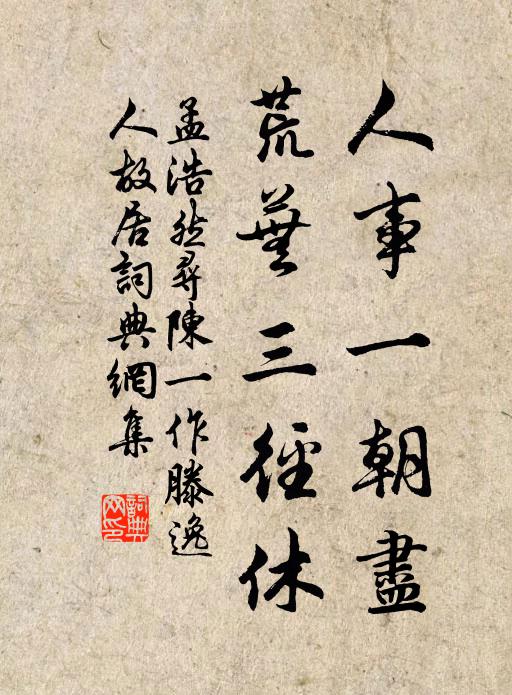 人事一朝盡
荒蕪三徑休
孟浩然尋陳一作滕逸
人故居詞典網集
詞典網印